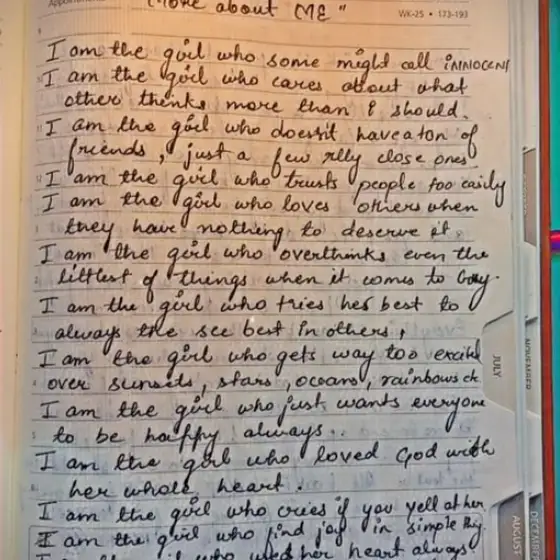 Appointments
"More about ME"
WK-25 • 173-193
I am the girl who some might call iNNOCENT
I am the girl who cares about what
other thinks more than I should.
I am the girl who doesn't have a ton of
friends, just a few rlly close ones
I am the girl who trusts people too easily
I am the girl who loves others when
they have nothing to deserve it.
I am the girl who overthinks even the
littlest of things when it comes to
I am the girl who tries her best to
always the see best in others,
I am the girl who gets way too excited
over sunsets, stars, oceans, rainbows etc
I am the girl who just wants everyone
to be happy always..
I am the girl who loved God with
her whole heart.
I am the girl who cries if you yell at her
I am the girl who find joy in simple thing.
who used her heart always
JULY
NOVEMBER
AUGUST